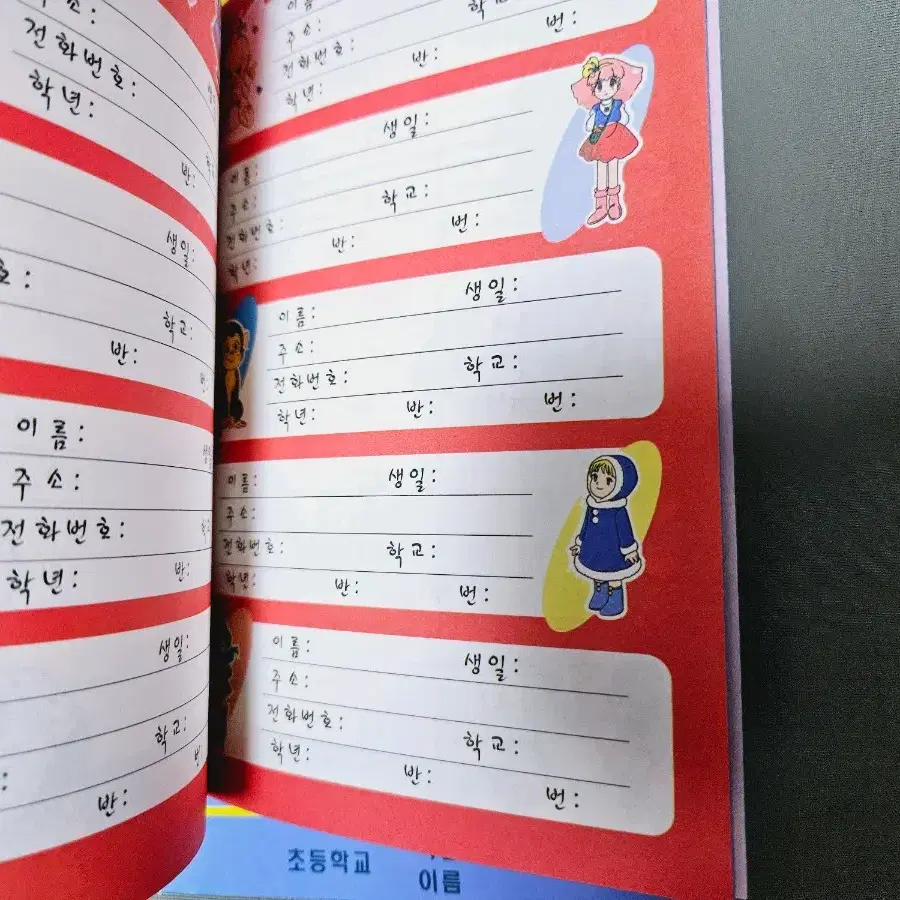 주소:
전화번호:
학년:
반:
생일:
호:
학교:
반:
이름:
주소:
전화번호:
학년: 반:
생일:
학교:
반:
이름:
주소: 학교:
전화번호: 번:
학년: 반:
이름: 생일:
주소: 학교:
전화번호: 번:
학년: 반:
이름: 생일:
주소:
전화번호: 학교:
학년: 반: 번:
이름: 생일:
주소:
전화번호: 학교:
학년: 반: 번:
이름: 생일:
주소:
전화번호: 학교:
학년: 반: 번:
초등학교
이름